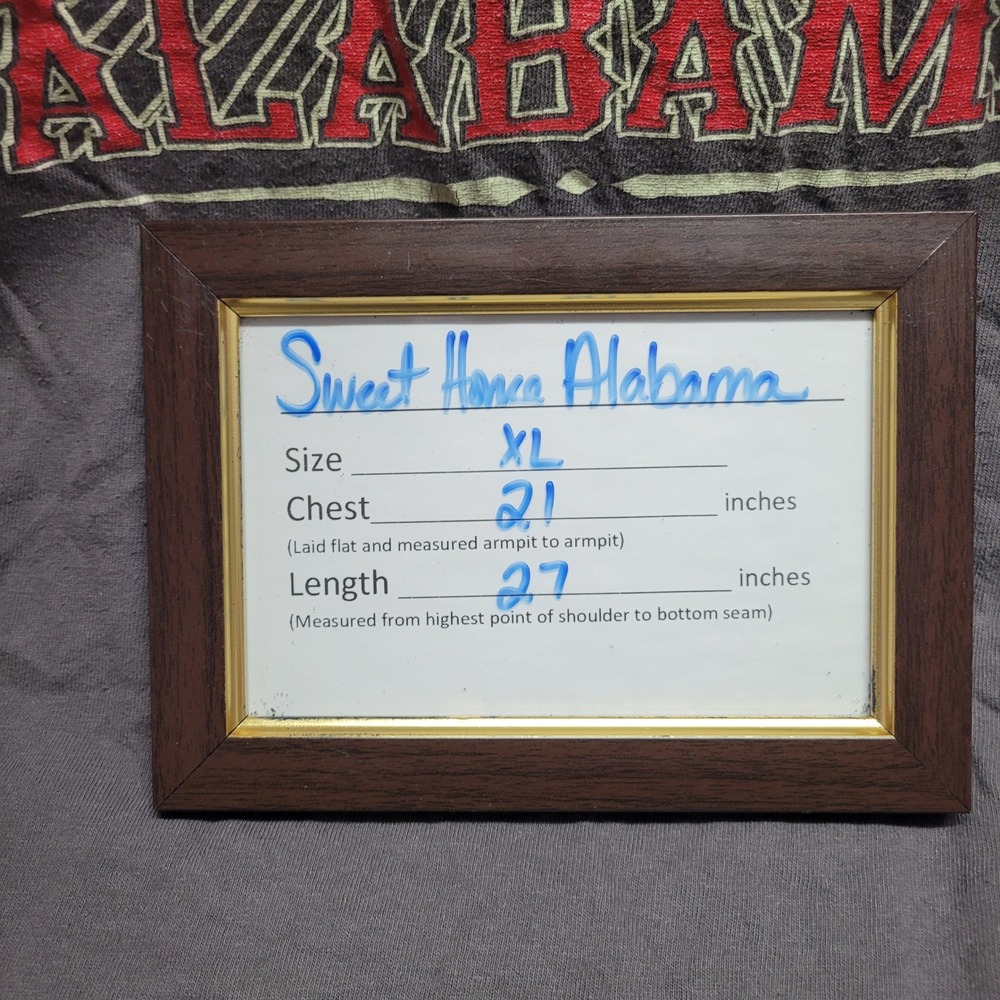 ALABAMA
Sweet Home Alabama
Size XL
Chest 21 inches
(Laid flat and measured armpit to armpit)
Length 27 inches
(Measured from highest point of shoulder to bottom seam)